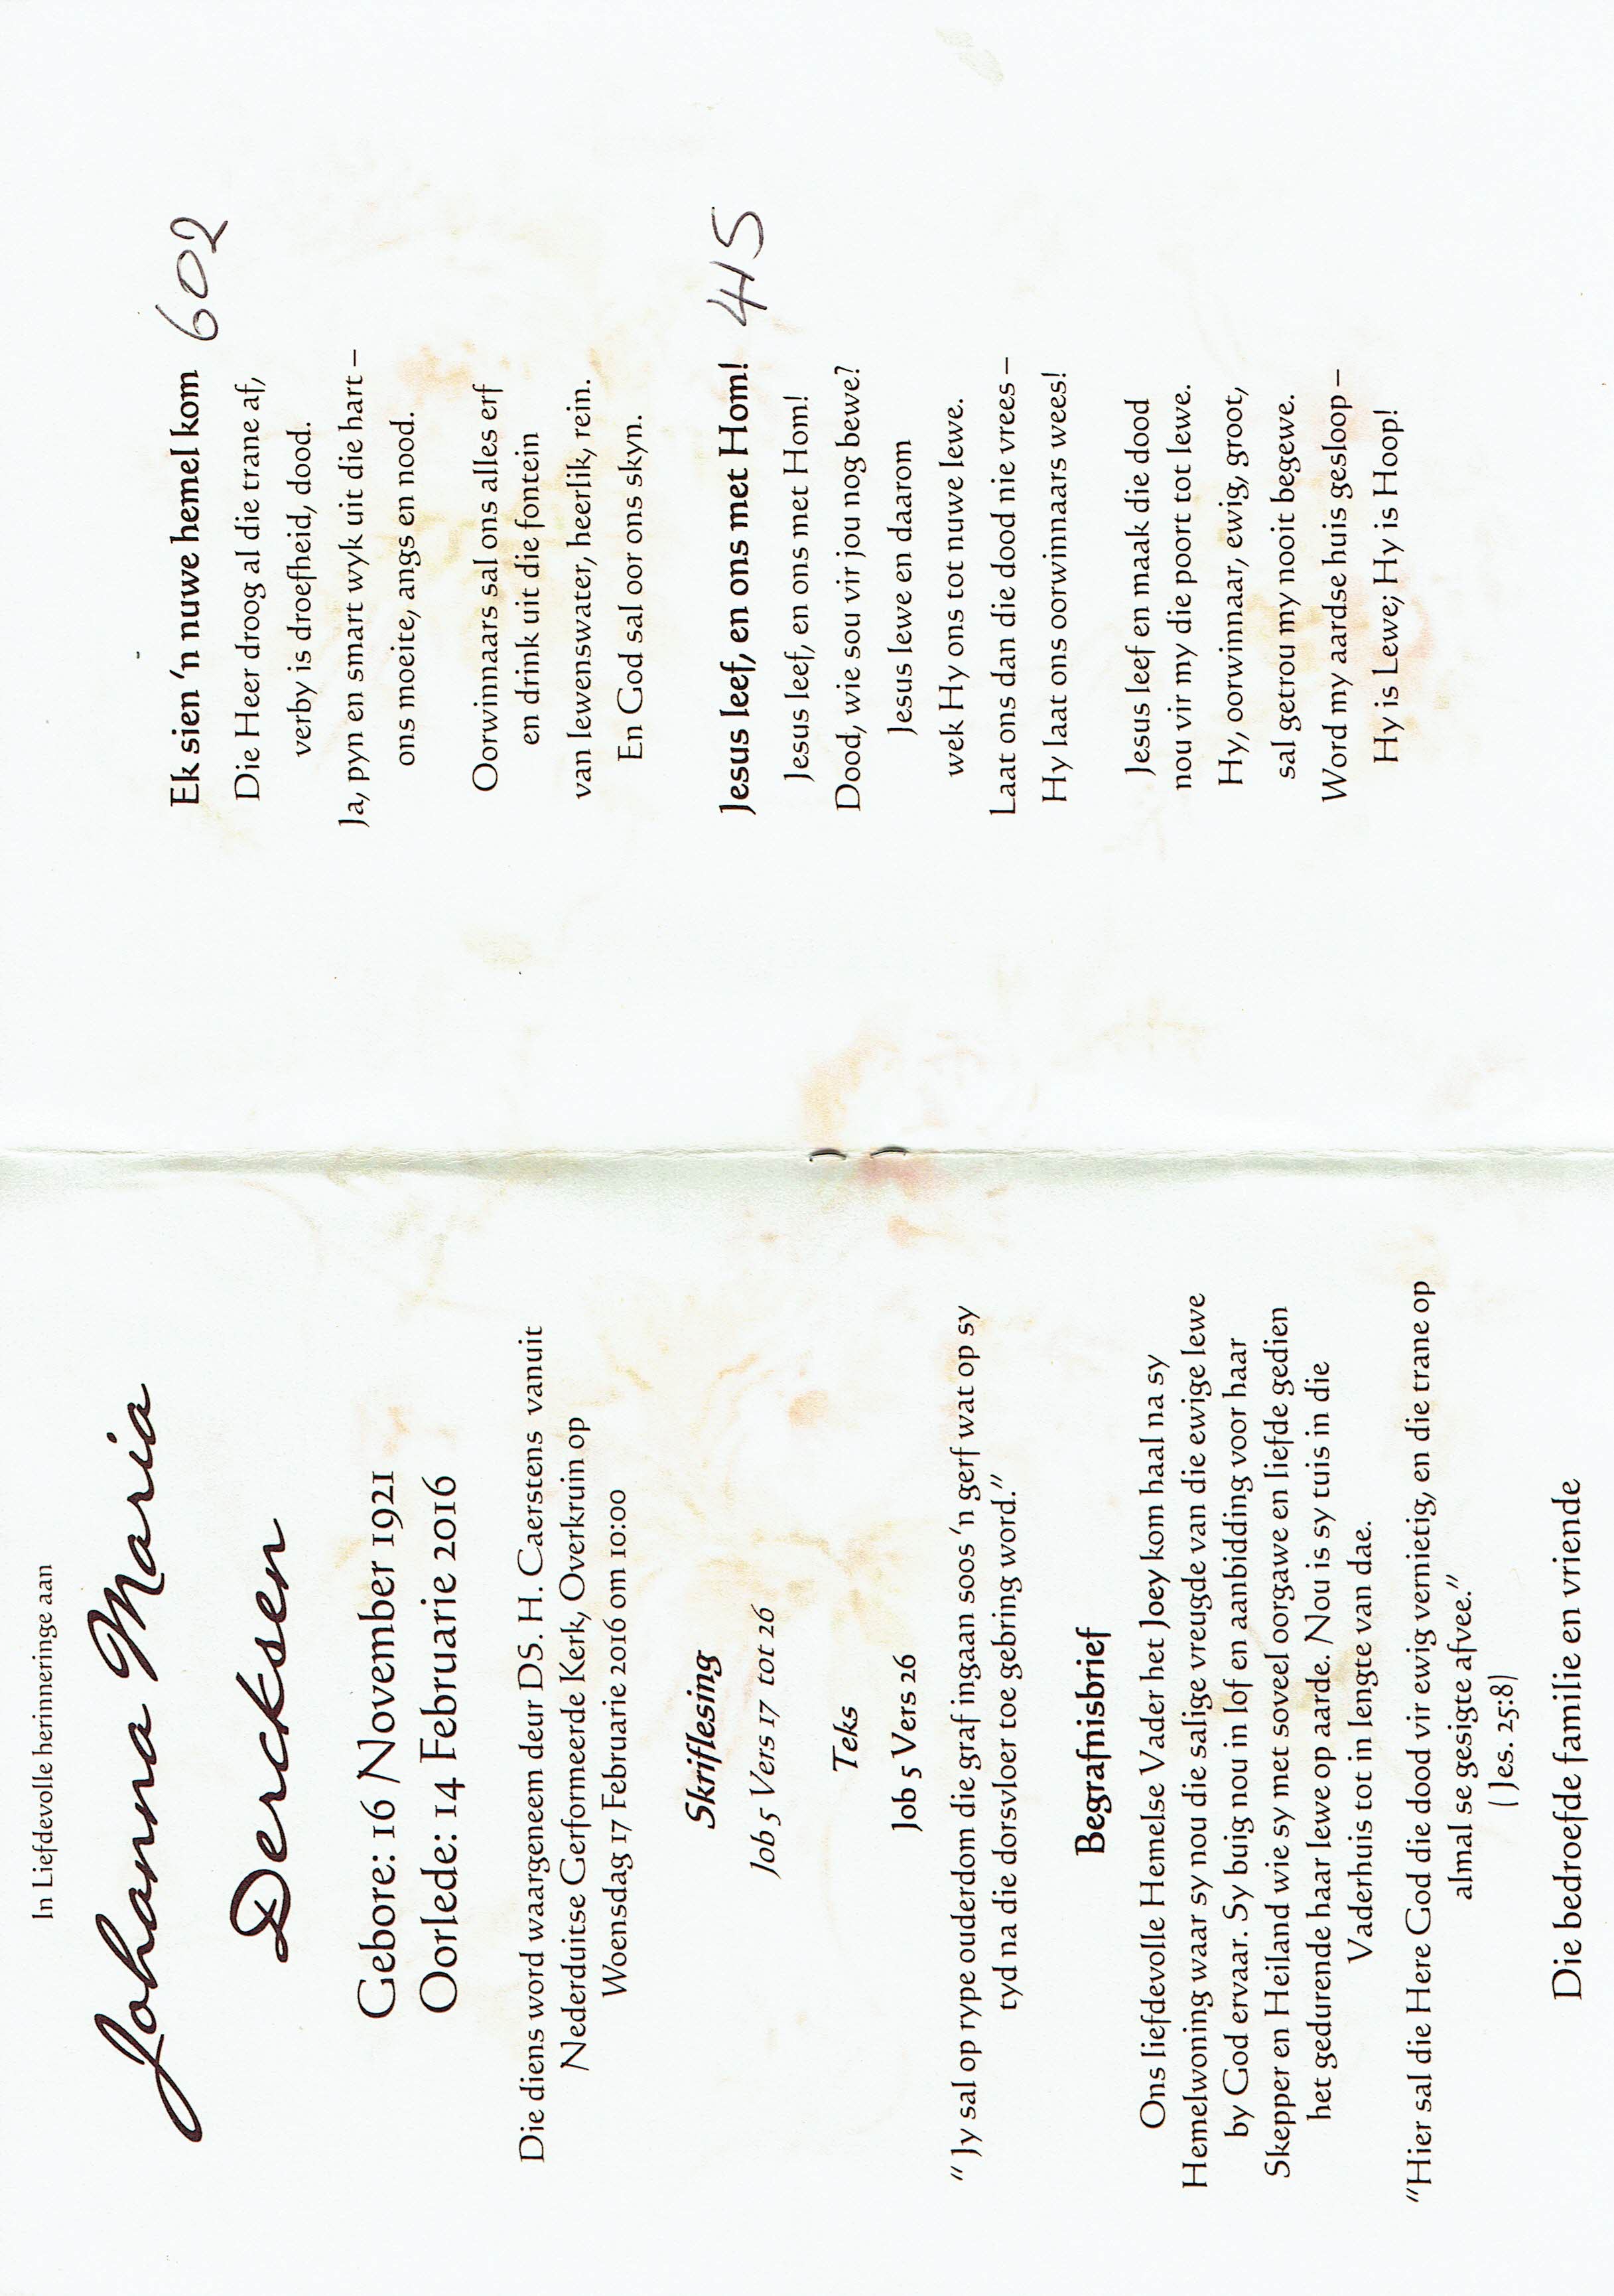 In Liefdevolle herinneringe aan
Johanna Maria
Dercksen
Gebore: 16 November 1921
Oorlede: 14 Februarie 2016
Die diens word waargeneem deur DS. H. Caerstens vanuit
Nederduitse Gerformeerde Kerk, Overkruin op
Woensdag 17 Februarie 2016 om 10:00
Skriflesing
Job 5 Vers 17 tot 26
Teks
Job 5 Vers 26
“Jy sal op rype ouderdom die graf ingaan soos ‘n gerf wat op sy
tyd na die dorsvloer toe gebring word.”
Begrafnisbrief
Ons liefdevolle Hemelse Vader het Joey kom haal na sy
Hemelwoning waar sy nou die salige vreugde van die ewige lewe
by God ervaar. Sy buig nou in lof en aanbidding voor haar
Skepper en Heiland wie sy met soveel oorgawe en liefde gedien
het gedurende haar lewe op aarde. Nou is sy tuis in die
Vaderhuis tot in lengte van dae.
“Hier sal die Here God die dood vir ewig vernietig, en die trane op
almal se gesigte afvee.”
( Jes. 25:8)
Die bedroefde familie en vriende
Ek sien ‘n nuwe hemel kom 602
Die Heer droog al die trane af,
verby is droefheid, dood.
Ja, pyn en smart wyk uit die hart –
ons moeite, angs en nood.
Oorwinnaars sal ons alles erf
en drink uit die fontein
van lewenswater, heerlik, rein.
En God sal oor ons skyn.
Jesus leef, en ons met Hom! 415
Jesus leef, en ons met Hom!
Dood, wie sou vir jou nog bewe?
Jesus lewe en daarom
wek Hy ons tot nuwe lewe.
Laat ons dan die dood nie vrees –
Hy laat ons oorwinnaars wees!
Jesus leef en maak die dood
nou vir my die poort tot lewe.
Hy, oorwinnaar, ewig, groot,
sal getrou my nooit begewe.
Word my aardse huis gesloop –
Hy is Lewe; Hy is Hoop!